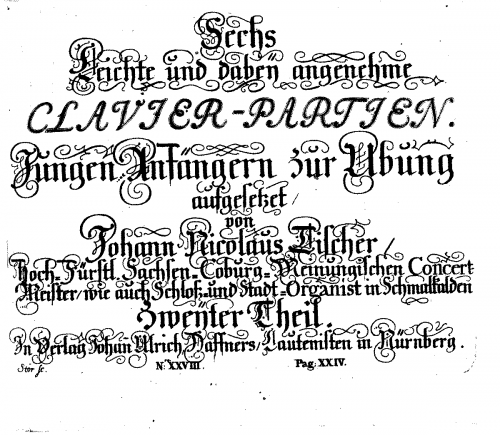 Sechs
Leichte und dabey angenehme
CLAVIER-PARTIEN.
Jungen Anfängern zur Übung
aufgesetzet /
von
Johann Nicolaus Tischer /
Hoch-Fürstl. Sachsen-Coburg-Meinungischen Concert
Meister / wie auch Schloß- und Stadt-Organist in Schmalkalden
Zweyter Theil.
In Verlag Johan Ulrich Haffners / Lautenisten in Nürnberg.
Stör sc.
No. XXVIII. Pag. XXIV.